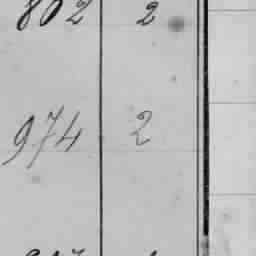 802 2
974 2